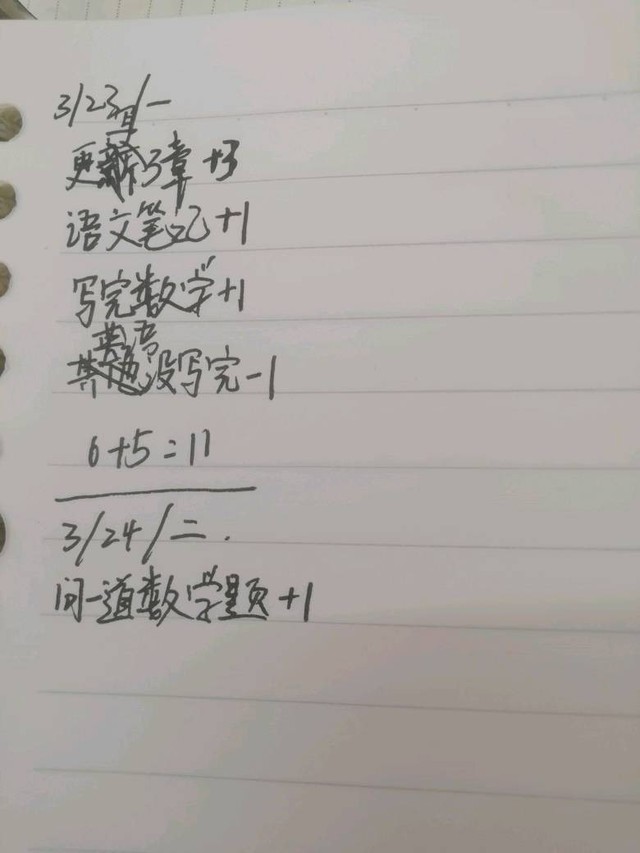 3/23/一
写
更新3章+3
语文笔记+1
写完数学+1
英语
没写完-1
6+5=11
3/24/二.
问一道数学题+1